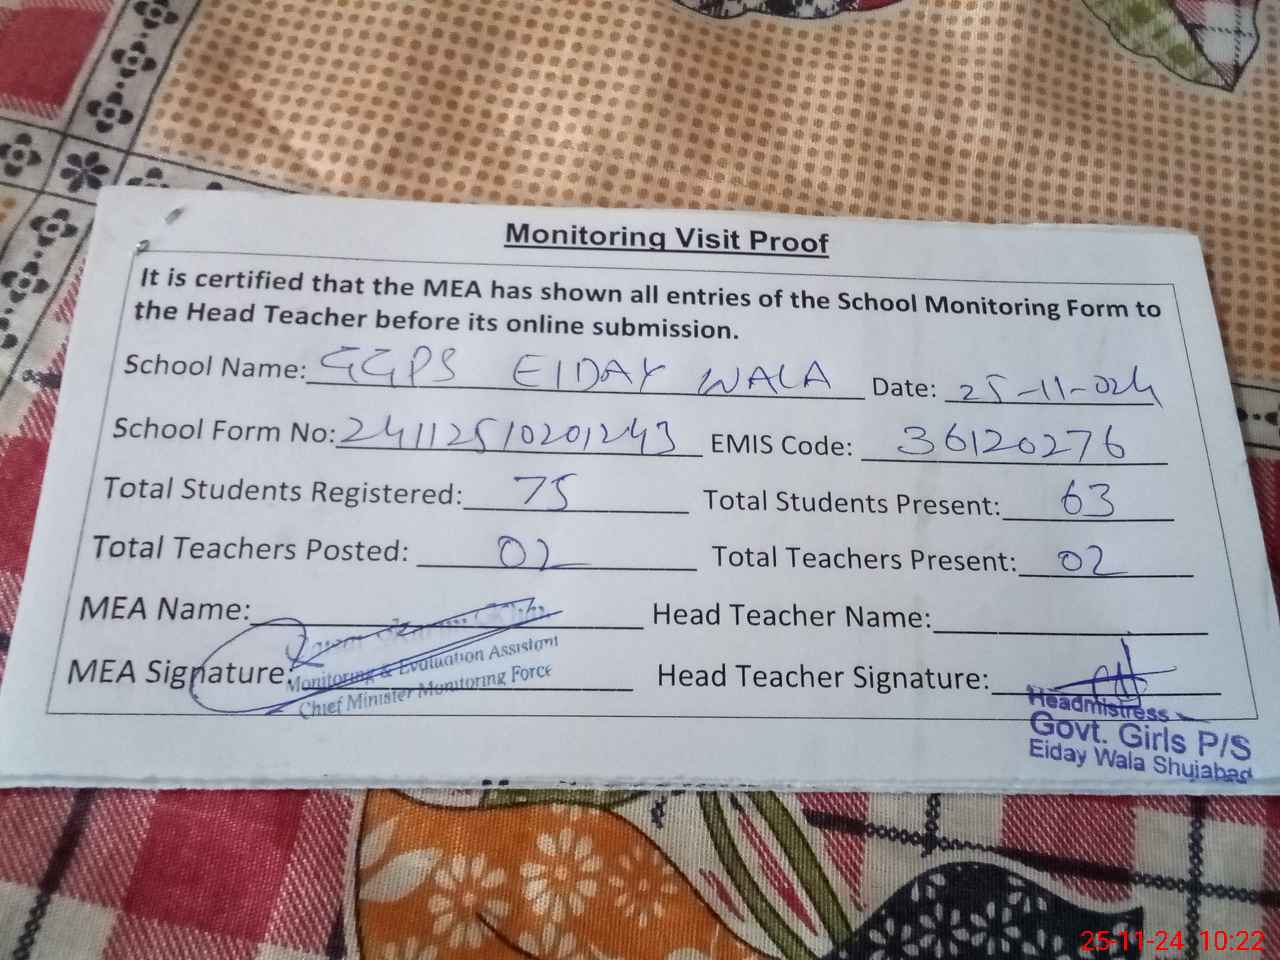 Monitoring Visit Proof
It is certified that the MEA has shown all entries of the School Monitoring Form to
the Head Teacher before its online submission.
School Name: GGPS EIDAY WALA Date: 25-11-024
School Form No: 24112510201243 EMIS Code: 36120276
Total Students Registered: 75 Total Students Present: 63
Total Teachers Posted: 02 Total Teachers Present: 02
MEA Name: Head Teacher Name:
MEA Signature: Head Teacher Signature:
Monitoring & Evaluation Assistant
Chief Minister Monitoring Force
Headmistress
Govt. Girls P/S
Eiday Wala Shujabad
25-11-24 10:22